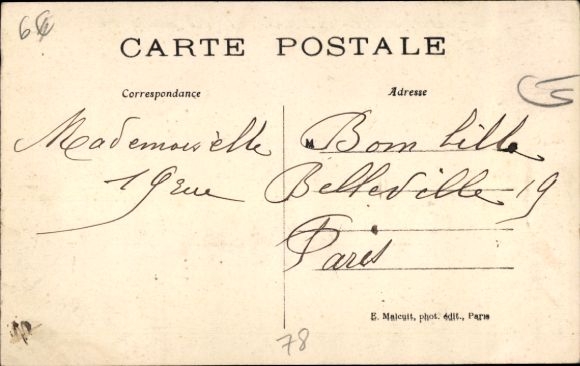 6
CARTE POSTALE
Correspondance
Adresse
Mademoiselle
M Bomhille
19 rue Belleville 19
Paris
E. Malcuit, phot. édit., Paris
78